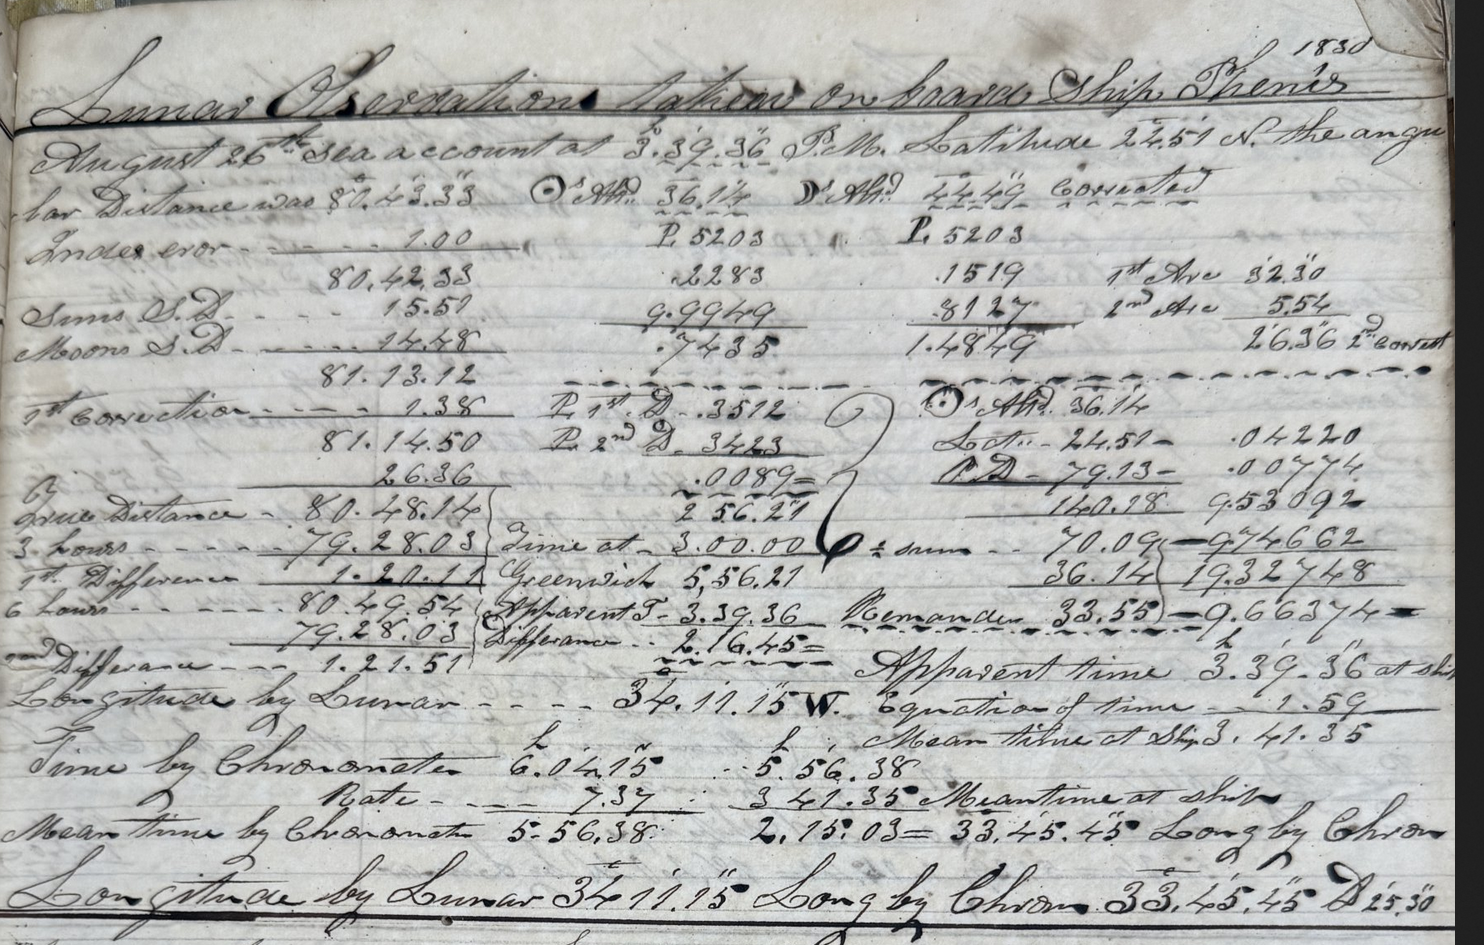 1830
Lunar Observations taken on board Ship Phenix
August 26th sea account at 3.39.36 P.M. Latitude 24.51 N. the angu
lar Distance was 80.43.33 ☉s Altd. 36.14 ☽s Altd. 44.49 Corrected
Index eror 1.00 P. 5203 P. 5203
80.42.33 .2283 .1519 1st Arc 32.30
Suns S.D. 15.51 9.9949 .8127 2nd Arc 5.54
Moons S.D. 14.48 .7435 1.4849 26.36 2d corect
81.13.12
1st Correction 1.38 P. 1st D. .3512 ☉s Altd. 36.14
81.14.50 P. 2nd D. 3423 Lat. 24.51 .04220
26.36 .0089= P.D 79.13 .00774
2 56.21 140.18 9.53092
True Distance 80.48.14
3 hours 79.28.03 Time at 3.00.00 ½ sum 70.09 9.74662
1st Difference 1.20.11 Greenwich 5,56.21 36.14 19.32748
6 hours 80.49.54 Apparent T 3.39.36 Remander 33.55 9.66374
79.28.03 Differance 2.16.45=
2nd Differance 1.21.51 Apparent time 3.39.36 at ship
Longitude by Lunar 34.11.15 W. Equation of time 1.59
Mean time at Ship 3.41.35
Time by Chronometer 6.04.15 5.56.38
Rate 7.37 3 41.35 Meantime at ship
Mean time by Chronomete 5-56.38 2.15.03= 33.45.45 Long by Chron
Longitude by Lunar 34 11.15 Long by Chron 33.45.45 D 25.30